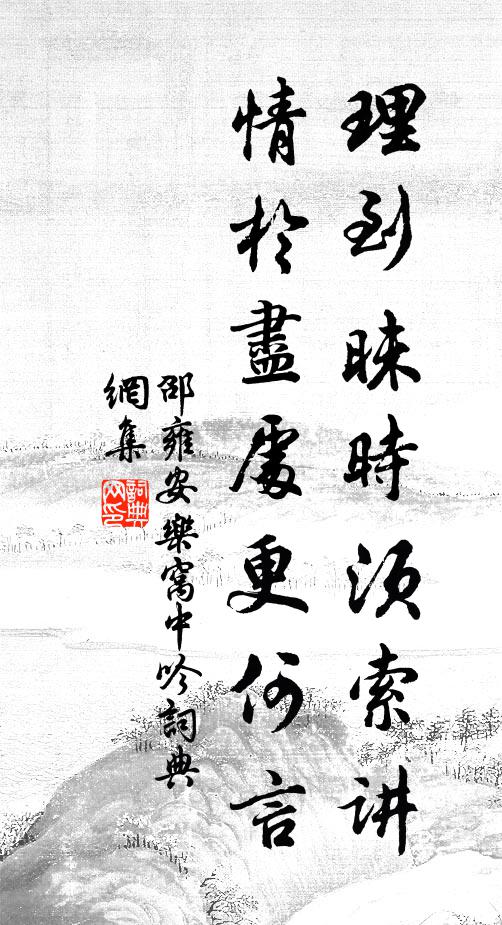 理到昧時須索讲
情於盡處更何言
邵雍安樂窩中吟詞典
網集
詞典
网印